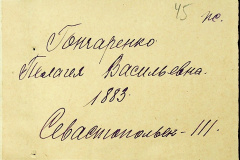 45 рс.
Гончаренко
Пелагея Васильевна.
1883.
Севастопольск - III.